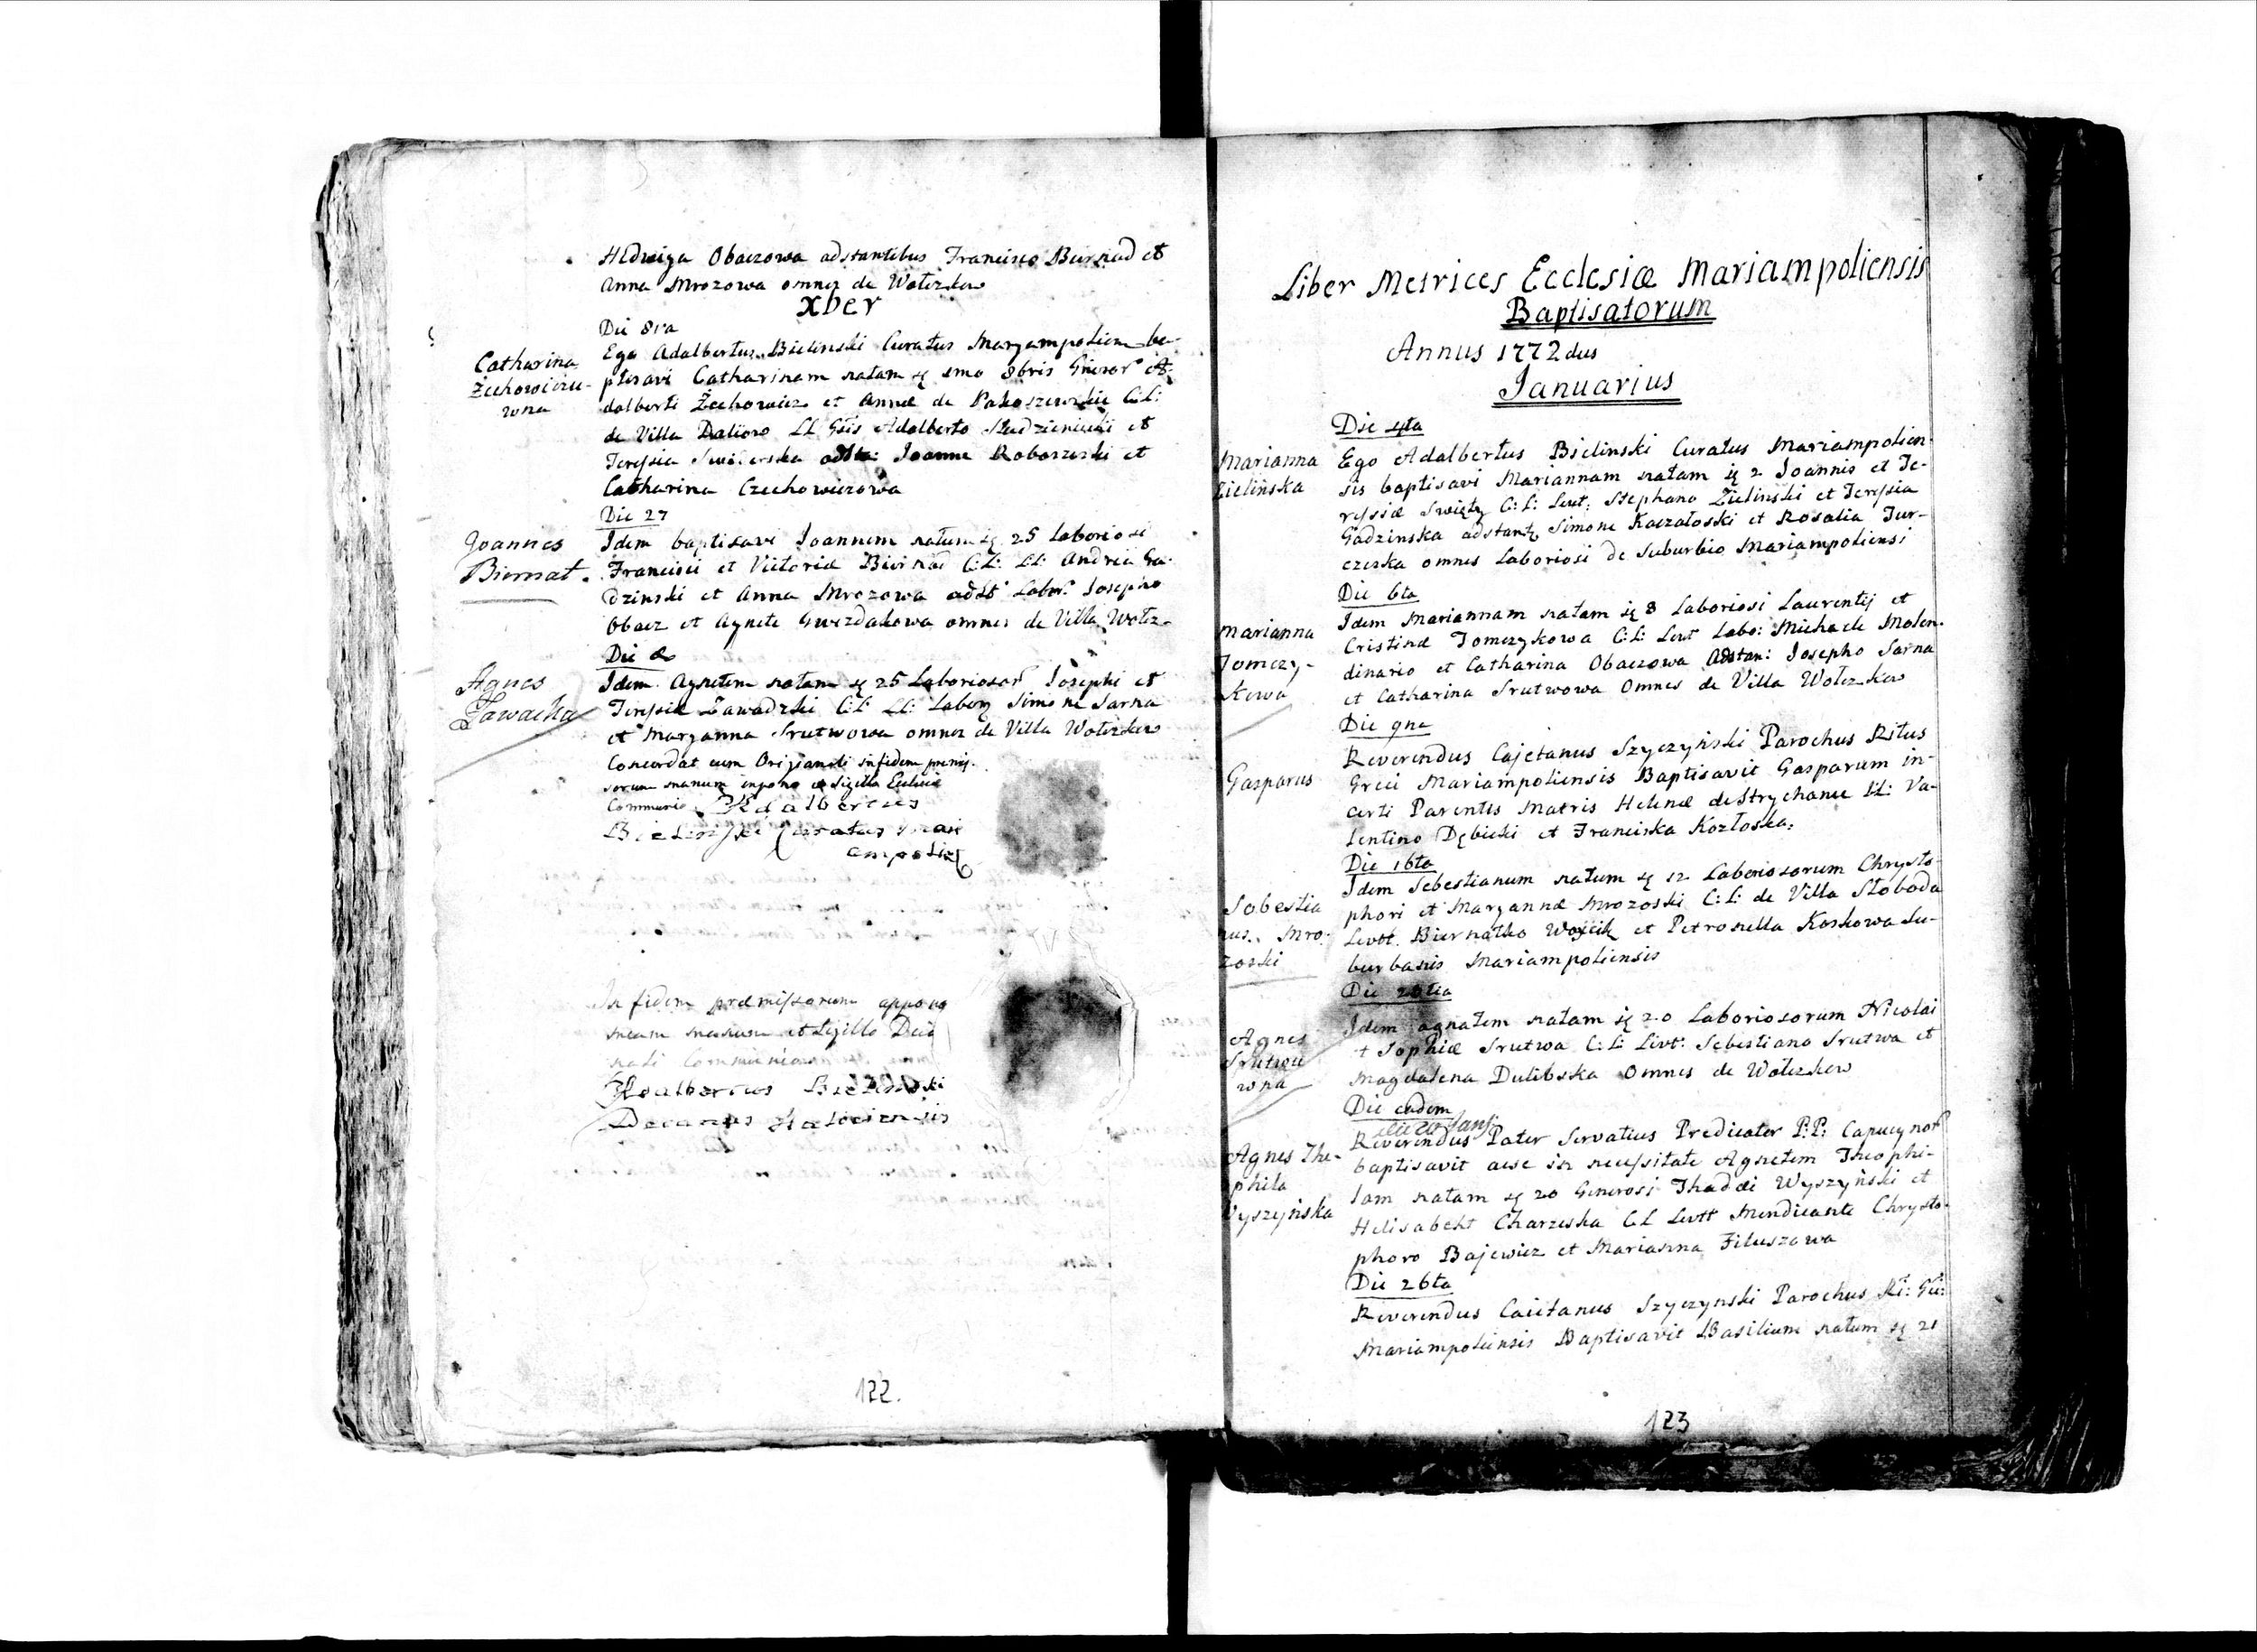 Hedwiga Obaczowa adstantibus Francisco Biernad et
Anna Mrozowa omnes de Wolczkow
XBER
Die 8va
Catharina
Żechowiczu-
wna
Ego Adalbertus Bielinski Curatus Maryampolien ba-
ptisavi Catharinam natam ę 8bris Generor A-
dalberti Żechowicz et Annæ de Pakoszewskie C:L:
de Villa LL Gsis Adalberto Studzieniecki et
Teressia Joanne Roboszeski et
Catharina Czechowiczowa
Die 27
Joannes
Biernat.
Idem baptisavi Joannem natum ę 25 Laboriosi
Francisci et Victoriæ Biernad C:L: LL: Andrea Ga-
dzinski et Anna Mrozowa adst Labor: Josepho
Obacz et Agnete Gwezdakowa omnes de Villa Wolcz-
Die
Agnes
Zawacka
Idem Agnetem natam ę 25 Laboriosor Josephi et
Teressiæ Zawadzki C:L: LL: Labory Simone Sarna
et Maryanna Srutwowa omnes de Villa Wolczkow
Concordat cum Originali in fidem premis-
sorum manum inpono et Sigillo Eclesiæ
Communio Adalbertus
Bielinski Curatus Mari
ampolie
In fidem præmissorum appono
meam manum et Sigillo Deca
nali Communio
Adalbertus Bielinski
Decanus Haliciensis
122.
Liber Metrices Ecclesiæ Mariampoliensis
Baptisatorum
Annus 1772dus
Januarius
Die 4ta
Marianna
Zielinska
Ego Adalbertus Bielinski Curatus Mariampolien-
sis baptisavi Mariannam natam ę 2 Joannis et Te-
ressiæ Swięty C:L: Levt: Stephano Zielinski et Teressia
Gadzinska adstanty Simone Kaczałoski et Rosalia Tur-
czeska omnes Laboriosi de Suburbio Mariampoliensi
Die 6ta
Marianna
Tomczy-
kowa
Idem Mariannam natam ę 8 Laboriosi Laurentij et
Cristinæ Tomczykowa C:L: Levt Labo: Michaele Molen-
dinario et Catharina Obaczowa Adstan: Josepho Sarna
et Catharina Srutwowa Omnes de Villa Wolczkow
Die 9na
Gasparus
Reverendus Cajetanus Szyczyński Parochus Ritus
Greci Mariampoliensis Baptisavit Gasparum in-
certi Parentis Matris Helenæ de Strychance LL: Va-
lentino Dębicki et Franciska Kozłoska.
Die 16ta
Sebestia
nus Mro-
zoski
Idem Sebestianum natum ę 12 Laboriosorum Chrysto-
phori et Maryannæ Mrozoski C:L: de Villa Słoboda
Levtt. Biernatko Woycik et Petronella Koskowa Su-
burbanis Mariampoliensis
Die
Agnes
Srutwu
wna
Idem agnatem natam ę 20 Laboriosorum Nicolai
+ Sophiæ Srutwa C:L: Livt: Sebestiano Srutwa et
Magdalena Dulibska Omnes de Wolczkow
Die eadem
die 20 Januj
Agnes The-
phila
Wyszyńska
Reverendus Pater Servatius Predicator P:P: Capucynor
baptisavit acse in necessitate Agnetem Theophi-
lam natam ę 20 Generosi Thaddei Wyszyński et
Helisabeht Charzeska C.L Levtt Mendicante Chrysto-
phoro Bajewicz et Marianna Filuszowa
Die 26ta
Reverendus Caietanus Szyczynski Parochus Ri: Gr:
Mariampoliensis Baptisavit Basilium natum ę 21
123